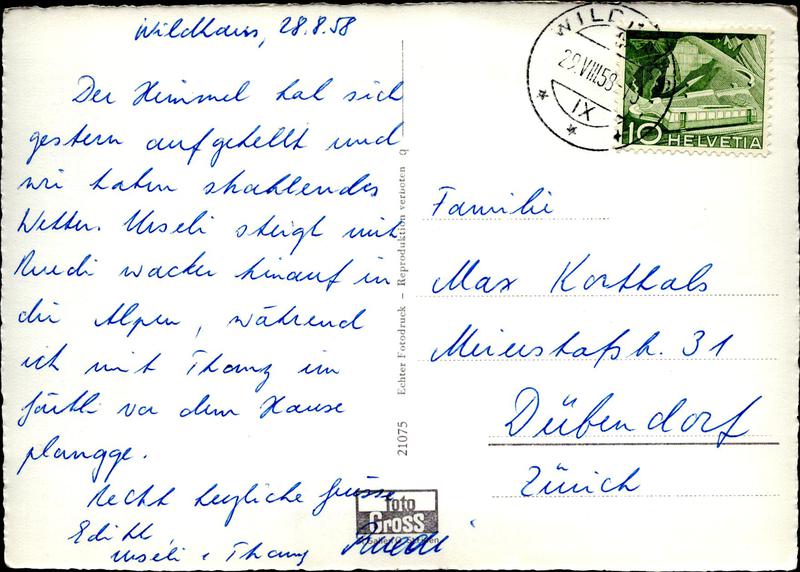 Wildhaus, 28.8.58
Der Himmel hat sich
gestern aufgehellt und
wir haben strahlendes
Wetter. Urseli steigt mit
Ruedi wacker hinauf in
die Alpen, während
ich mit Thomy im
Gärtli vor dem Hause
plangge.
Recht herzliche Grüsse
Edith,
Urseli + Thomy Ruedi
21075 Echter Fotodruck – Reproduktion verboten q
foto
Gross
WILDH
29.VIII.58
IX
10 HELVETIA
Familie
Max Korthals
Meierstaßstr. 31
Dübendorf
Zürich